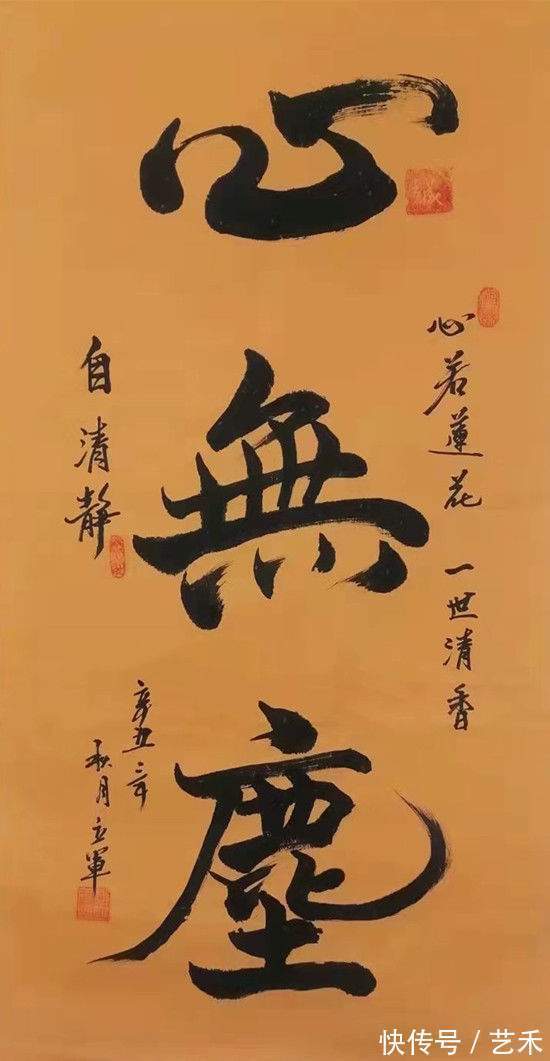 心無塵
心若蓮花 一世清香
自清靜
辛丑年
秋月立軍
快传号 / 艺禾